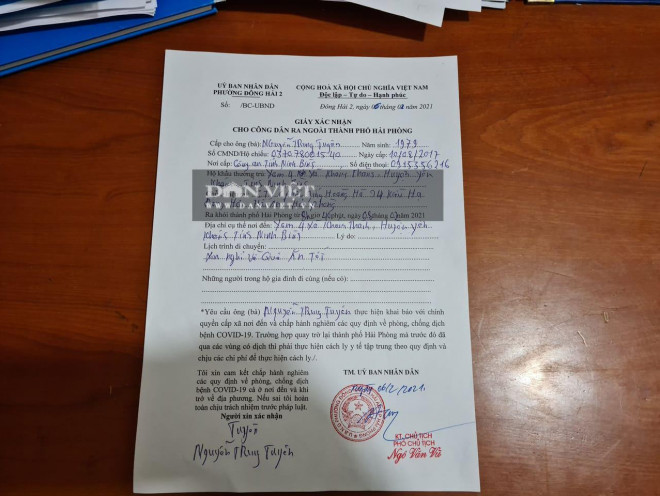 ỦY BAN NHÂN DÂN
PHƯỜNG ĐÔNG HẢI 2
CỘNG HOÀ XÃ HỘI CHỦ NGHĨA VIỆT NAM
Độc lập – Tự do – Hạnh phúc
Số: /BC-UBND
Đông Hải 2, ngày 06 tháng 02 năm 2021
GIẤY XÁC NHẬN
CHO CÔNG DÂN RA NGOÀI THÀNH PHỐ HẢI PHÒNG
Cấp cho ông (bà): Nguyễn Trung Tuyên Năm sinh: 1979
Số CMND/Hộ chiếu: Ngày cấp: 10/08/2017
Nơi cấp: Công an Tỉnh Ninh Bình Số điện thoại: 0915356216
Hộ khẩu thường trú: Xóm 4 Xã Khánh Huyện Yên
DÂN VIỆT
WWW.DANVIET.VN
Ra khỏi thành phố Hải Phòng từ giờ phút, ngày 2021
Địa chỉ cụ thể nơi đến: Xóm 4 Xã Khánh Huyện Yên
Khánh Tỉnh Ninh Bình Lý do:
Lịch trình di chuyển:
Xin Nghỉ Về Quê Ăn Tết
Những người trong hộ gia đình đi cùng (nếu có):
*Yêu cầu ông (bà) Nguyễn Trung Tuyên thực hiện khai báo với chính
quyền cấp xã nơi đến và chấp hành nghiêm các quy định về phòng, chống dịch
bệnh COVID-19. Trường hợp quay trở lại thành phố Hải Phòng mà trước đó đã
qua các vùng có dịch thì phải thực hiện cách ly y tế tập trung theo quy định và
chịu các chi phí để thực hiện cách ly./.
Tôi xin cam kết chấp hành nghiêm
các quy định về phòng, chống dịch
bệnh COVID-19 cả ở nơi đến và khi
trở về địa phương. Nếu sai tôi hoàn
toàn chịu trách nhiệm trước pháp luật.
Người xin xác nhận
Tuyên
Nguyễn Trung Tuyên
TM. UỶ BAN NHÂN DÂN
Ngày 06/2/2021
KT. CHỦ TỊCH
PHÓ CHỦ TỊCH
Ngô Văn Vã